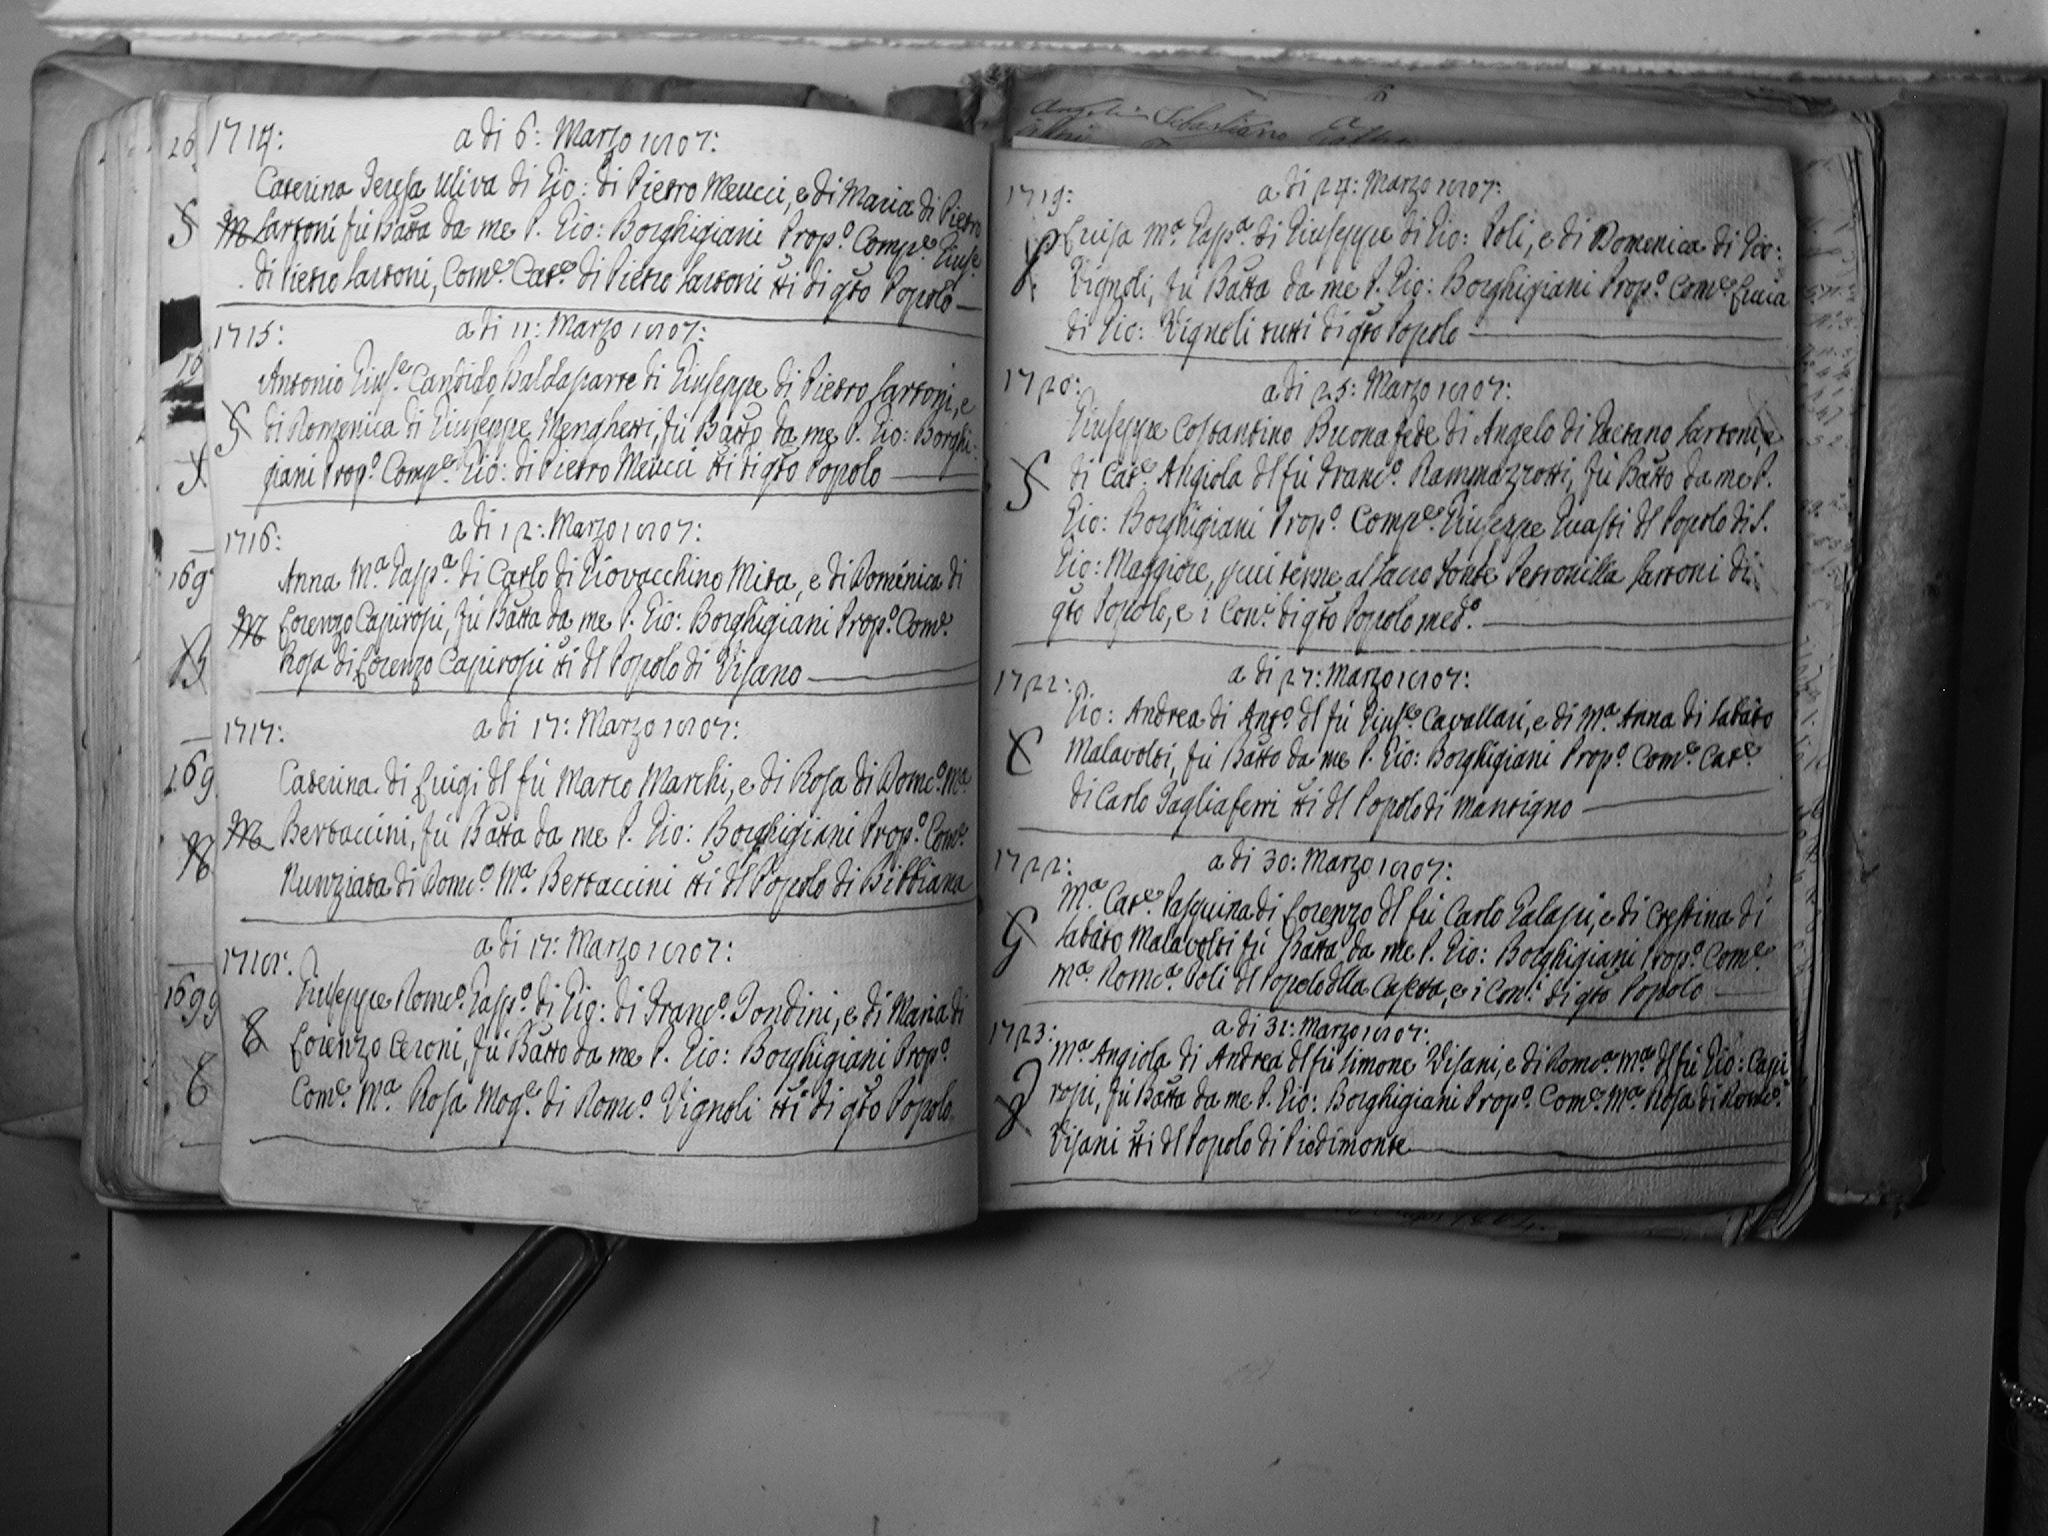 1714:
a di 6: Marzo 1807:
Caterina Teresa Uliva di Gio: di Pietro Meucci, e di Maria di Pietro
Sartoni fù Batta da me P. Gio: Borghigiani Propo. Compe. Giuse.
di Pietro Sartoni, Come. Cate. di Pietro Sartoni tti di qto Popolo
S
M
1715:
a di 11: Marzo 1807:
Antonio Giuse. Candido Baldasarre di Giuseppe di Pietro Sartoni, e
di Domenica di Giuseppe Menghetti, fù Batto da me P. Gio: Borghi-
giani Propo. Compe. Gio: di Pietro Meucci tti di qto Popolo
S
1716:
a di 12: Marzo 1807:
Anna Ma. Gaspa. di Carlo di Giovacchino Mita, e di Doménica di
Lorenzo Capirosii, fù Batta da me P. Gio: Borghigiani Propo. Come.
Rosa di Lorenzo Capirosii tti dl Popolo di Visano
M
1717:
a di 17: Marzo 1807:
Caterina di Luigi dl fù Marco Marchi, e di Rosa di Domco. Ma.
Bertaccini, fù Batta da me P. Gio: Borghigiani Propo. Come.
Nunziata di Domco. Ma. Bertaccini tti dl Popolo di Bibbiana
M
1718:
a di 17: Marzo 1807:
Giuseppe Domco. Gaspo. di Gio: di Franco. Tondini, e di Maria di
Lorenzo Ceroni, fù Batto da me P. Gio: Borghigiani Propo.
Come. Ma. Rosa Moge. di Domco. Vignoli tti di qto Popolo
1719:
a di 24: Marzo 1807:
Luisa Ma. Gaspa. di Giuseppe di Gio: Poli, e di Domenica di Gio:
Vignoli, fù Batta da me P. Gio: Borghigiani Propo. Come. Lucia
di Gio: Vignoli tutti di qto Popolo
P
1720:
a di 25: Marzo 1807:
Giuseppe Costantino Buonafede di Angelo di Gaetano Sartoni, e
di Cate. Angiola dl fù Franco. Rammazzotti, fù Batto da me P.
Gio: Borghigiani Propo. Compe. Giuseppe Guasti dl Popolo di S.
Gio: Maggiore, qui tenne al Sacro Fonte Petronilla Sartoni di
qto Popolo, e i Coni. di qto Popolo medo.
S
1721:
a di 27: Marzo 1807:
Gio: Andrea di Anto. dl fù Giuse. Cavallari, e di Ma. Anna di Sabato
Malavolti, fù Batto da me P. Gio: Borghigiani Propo. Come. Cate.
di Carlo Tagliaferri tti dl Popolo di Mantigno
C
1722:
a di 30: Marzo 1807:
Ma. Cate. Pasquina di Lorenzo dl fù Carlo Galassi, e di Crestina di
Sabato Malavolti fù Batta da me P. Gio: Borghigiani Propo. Come.
Ma. Domca. Poli dl Popolo dlla Casetta, e i Coni. di qto Popolo
G
1723:
a di 31: Marzo 1807:
Ma. Angiola di Andrea dl fù Simone Visani, e di Domca. Ma. dl fù Gio: Capi
rosii, fù Batta da me P. Gio: Borghigiani Propo. Come. Ma. Rosa di Domco.
Visani tti dl Popolo di Piedimonte